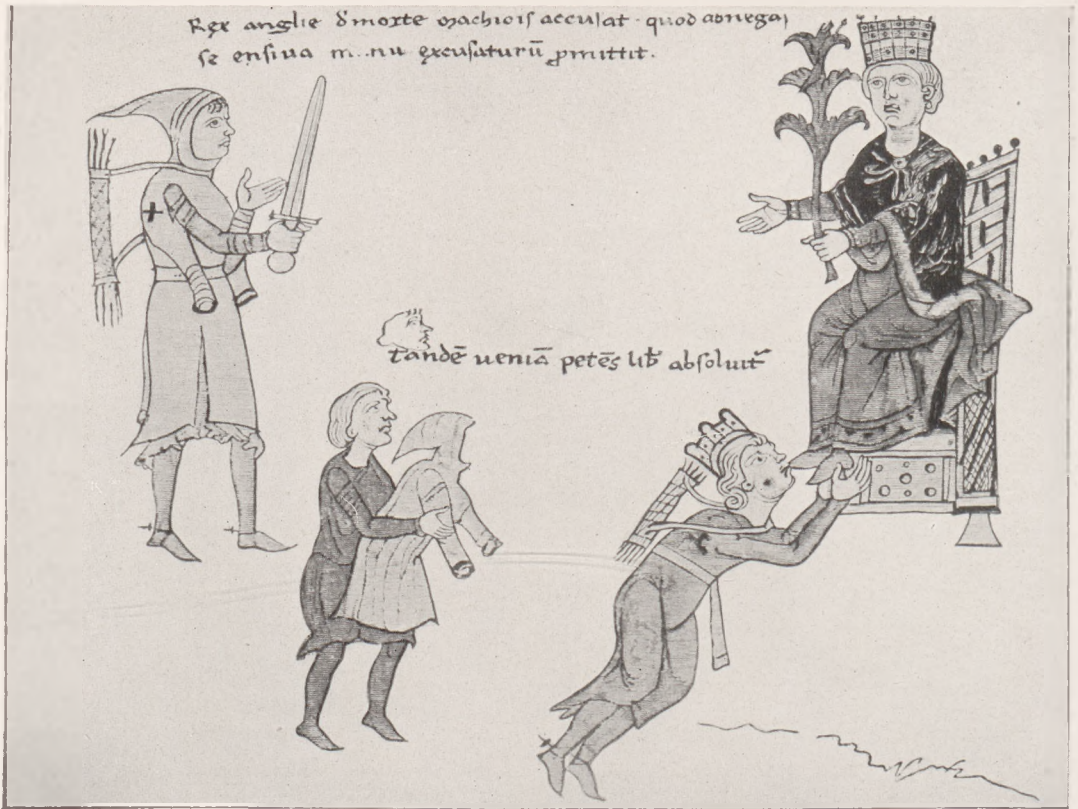 Rex anglie d̄ morte machiois accusat · quod abnegās
se ensiua m..nu excusaturū ꝓmittit.
tandē ueniā petēs lib̄ absoluit᷑